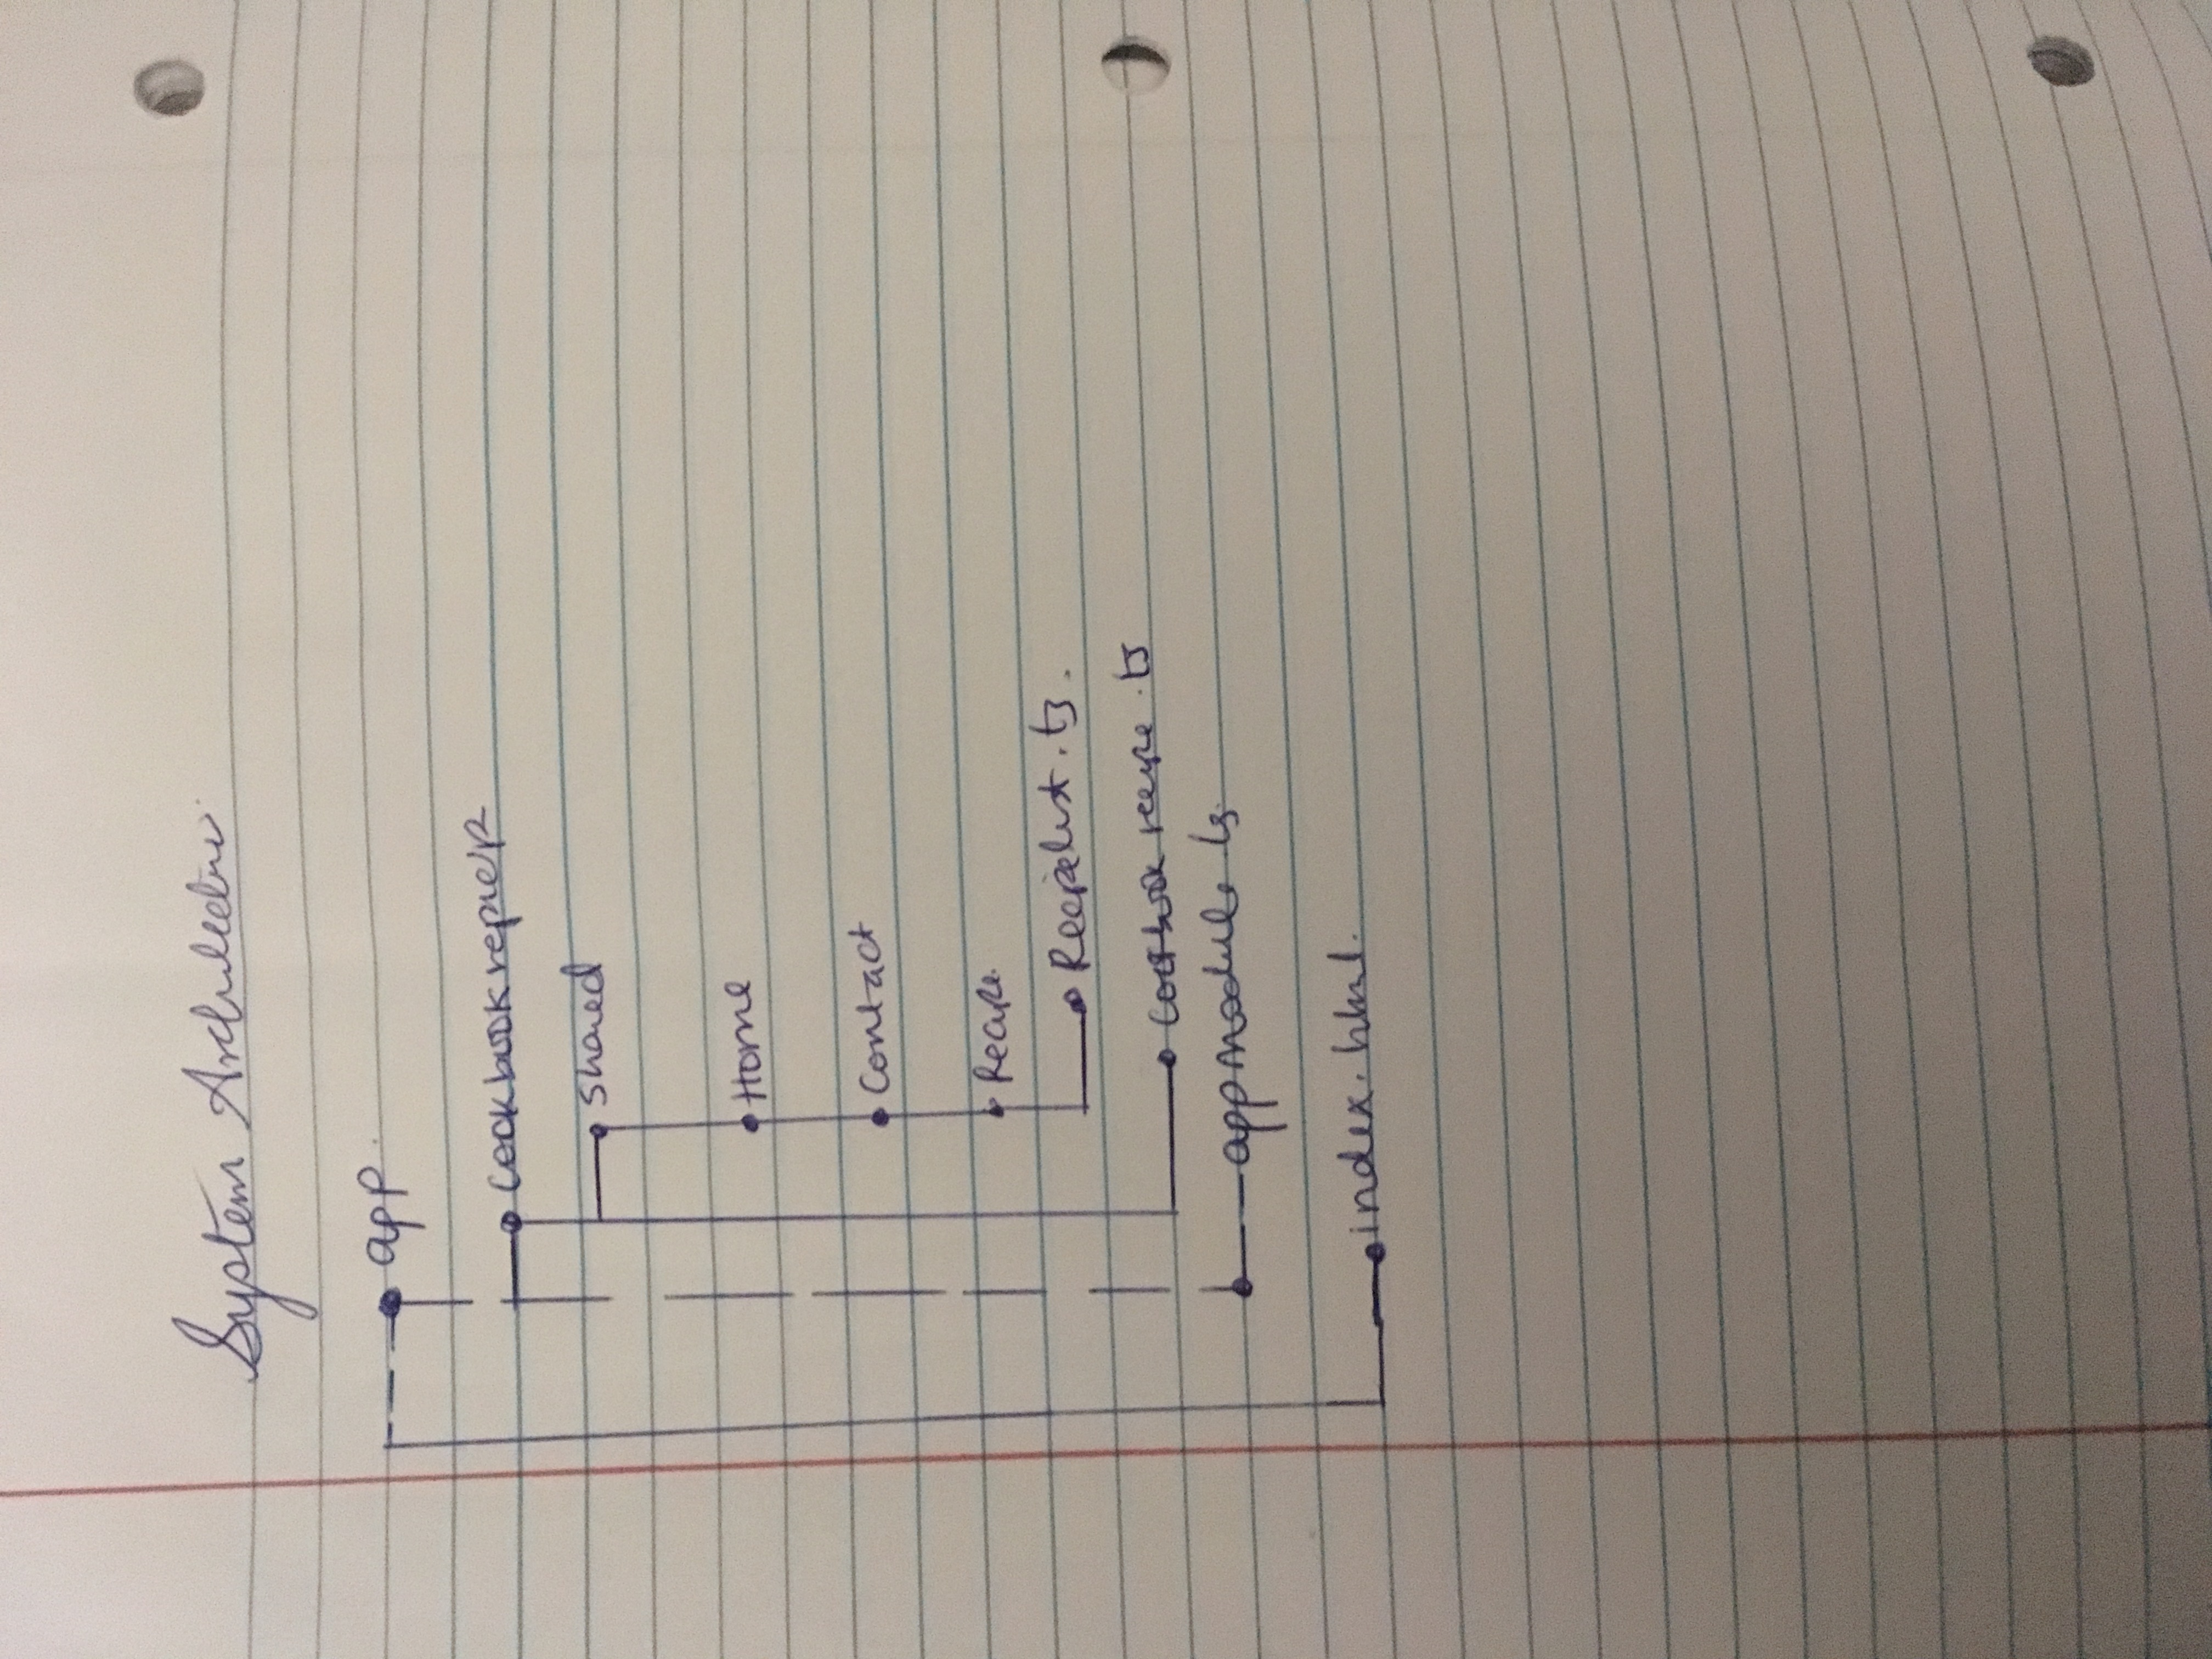 System Architectur
app.
Cookbookreper
Shared
Home
Contact
Recipe
Recipelist.ts.
ts
appmodule ts.
index.html.